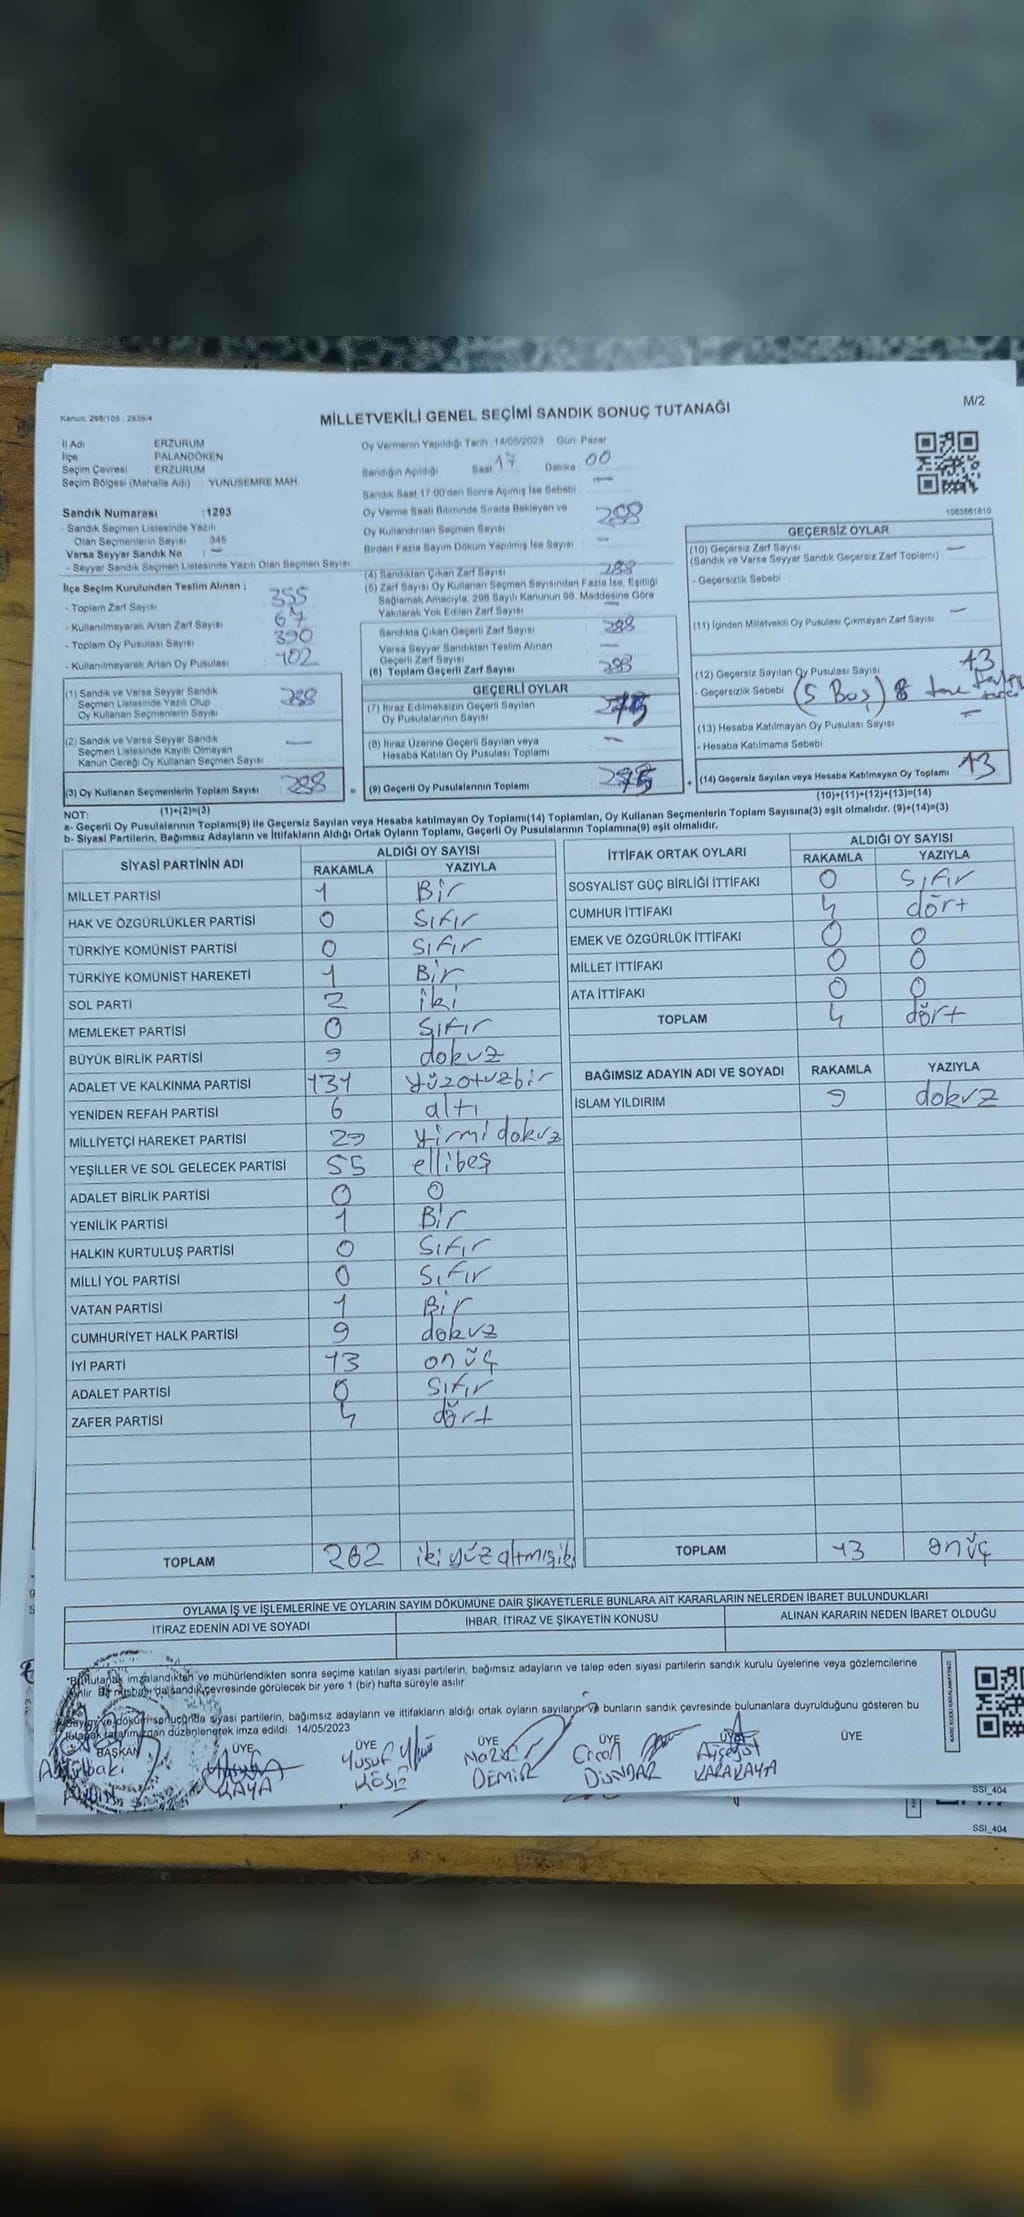 Kanun: 298/105 , 2839/4
MİLLETVEKİLİ GENEL SEÇİMİ SANDIK SONUÇ TUTANAĞI
M/2
İl Adı ERZURUM
İlçe PALANDÖKEN
Seçim Çevresi ERZURUM
Seçim Bölgesi (Mahalle Adı) YUNUSEMRE MAH
Sandık Numarası :1293
- Sandık Seçmen Listesinde Yazılı
Olan Seçmenlerin Sayısı 345
Varsa Seyyar Sandık No : —
- Seyyar Sandık Seçmen Listesinde Yazılı Olan Seçmen Sayısı
İlçe Seçim Kurulundan Teslim Alınan :
- Toplam Zarf Sayısı : 355
- Kullanılmayarak Artan Zarf Sayısı : 67
- Toplam Oy Pusulası Sayısı : 390
- Kullanılmayarak Artan Oy Pusulası : 102
(1) Sandık ve Varsa Seyyar Sandık
Seçmen Listesinde Yazılı Olup
Oy Kullanan Seçmenlerin Sayısı 288
(2) Sandık ve Varsa Seyyar Sandık
Seçmen Listesinde Kayıtlı Olmayan
Kanun Gereği Oy Kullanan Seçmen Sayısı —
(3) Oy Kullanan Seçmenlerin Toplam Sayısı 288
(1)+(2)=(3)
Oy Vermenin Yapıldığı Tarih :14/05/2023 Gün: Pazar
Sandığın Açıldığı Saat 17 Dakika 00
Sandık Saat 17:00'den Sonra Açılmış İse Sebebi : —
Oy Verme Saati Bitiminde Sırada Bekleyen ve
Oy Kullandırılan Seçmen Sayısı
288
Birden Fazla Sayım Döküm Yapılmış İse Sayısı —
(4) Sandıktan Çıkan Zarf Sayısı 288
(5) Zarf Sayısı Oy Kullanan Seçmen Sayısından Fazla İse, Eşitliği
Sağlamak Amacıyla, 298 Sayılı Kanunun 98. Maddesine Göre
Yakılarak Yok Edilen Zarf Sayısı —
Sandıkta Çıkan Geçerli Zarf Sayısı 288
Varsa Seyyar Sandıktan Teslim Alınan
Geçerli Zarf Sayısı —
(6) Toplam Geçerli Zarf Sayısı 288
GEÇERLİ OYLAR
(7) İtiraz Edilmeksizin Geçerli Sayılan
Oy Pusulalarının Sayısı 275
(8) İtiraz Üzerine Geçerli Sayılan veya
Hesaba Katılan Oy Pusulası Toplamı —
(9) Geçerli Oy Pusulalarının Toplamı 275
1083661810
GEÇERSİZ OYLAR
(10) Geçersiz Zarf Sayısı —
(Sandık ve Varsa Seyyar Sandık Geçersiz Zarf Toplamı)
- Geçersizlik Sebebi :
(11) İçinden Milletvekili Oy Pusulası Çıkmayan Zarf Sayısı —
(12) Geçersiz Sayılan Oy Pusulası Sayısı 13
- Geçersizlik Sebebi (5 Boş) 8 tane
(13) Hesaba Katılmayan Oy Pusulası Sayısı —
- Hesaba Katılmama Sebebi
(14) Geçersiz Sayılan veya Hesaba Katılmayan Oy Toplamı 13
(10)+(11)+(12)+(13)=(14)
NOT:
a- Geçerli Oy Pusulalarının Toplamı(9) ile Geçersiz Sayılan veya Hesaba katılmayan Oy Toplamı(14) Toplamları, Oy Kullanan Seçmenlerin Toplam Sayısına(3) eşit olmalıdır. (9)+(14)=(3)
b- Siyasi Partilerin, Bağımsız Adayların ve İttifakların Aldığı Ortak Oyların Toplamı, Geçerli Oy Pusulalarının Toplamına(9) eşit olmalıdır.
SİYASİ PARTİNİN ADI ALDIĞI OY SAYISI
RAKAMLA YAZIYLA
MİLLET PARTİSİ 1 Bir
HAK VE ÖZGÜRLÜKLER PARTİSİ 0 Sıfır
TÜRKİYE KOMÜNİST PARTİSİ 0 Sıfır
TÜRKİYE KOMÜNİST HAREKETİ 1 Bir
SOL PARTİ 2 iki
MEMLEKET PARTİSİ 0 Sıfır
BÜYÜK BİRLİK PARTİSİ 9 dokuz
ADALET VE KALKINMA PARTİSİ 131 yüzotuzbir
YENİDEN REFAH PARTİSİ 6 altı
MİLLİYETÇİ HAREKET PARTİSİ 29 yirmidokuz
YEŞİLLER VE SOL GELECEK PARTİSİ 55 ellibeş
ADALET BİRLİK PARTİSİ 0 0
YENİLİK PARTİSİ 1 Bir
HALKIN KURTULUŞ PARTİSİ 0 Sıfır
MİLLİ YOL PARTİSİ 0 Sıfır
VATAN PARTİSİ 1 Bir
CUMHURİYET HALK PARTİSİ 9 dokuz
İYİ PARTİ 13 onüç
ADALET PARTİSİ 0 Sıfır
ZAFER PARTİSİ 4 dört
TOPLAM 262 ikiyüzaltmışiki
İTTİFAK ORTAK OYLARI ALDIĞI OY SAYISI
RAKAMLA YAZIYLA
SOSYALİST GÜÇ BİRLİĞİ İTTİFAKI 0 Sıfır
CUMHUR İTTİFAKI 4 dört
EMEK VE ÖZGÜRLÜK İTTİFAKI 0 0
MİLLET İTTİFAKI 0 0
ATA İTTİFAKI 0 0
TOPLAM 4 dört
BAĞIMSIZ ADAYIN ADI VE SOYADI RAKAMLA YAZIYLA
İSLAM YILDIRIM 9 dokuz
TOPLAM 13 onüç
OYLAMA İŞ VE İŞLEMLERİNE VE OYLARIN SAYIM DÖKÜMÜNE DAİR ŞİKAYETLERLE BUNLARA AİT KARARLARIN NELERDEN İBARET BULUNDUKLARI
İTİRAZ EDENİN ADI VE SOYADI İHBAR, İTİRAZ VE ŞİKAYETİN KONUSU ALINAN KARARIN NEDEN İBARET OLDUĞU
*Bu tutanak imzalandıktan ve mühürlendikten sonra seçime katılan siyasi partilerin, bağımsız adayların ve talep eden siyasi partilerin sandık kurulu üyelerine veya gözlemcilerine
verilir. Bir nüshası da sandık çevresinde görülecek bir yere 1 (bir) hafta süreyle asılır.
Sayım ve döküm sonucunda siyasi partilerin, bağımsız adayların ve ittifakların aldığı ortak oyların sayılarını ve bunların sandık çevresinde bulunanlara duyrulduğunu gösteren bu
tutanak tarafımızdan düzenlenerek imza edildi. 14/05/2023
BAŞKAN ÜYE ÜYE ÜYE ÜYE ÜYE ÜYE
Abdulbaki Yusuf Ercan Ayşegül
AYDIN KAYA KÖSE DEMİR DÜNDAR KARAKAYA
KARE KODU KARALAMAYINIZ
SSI_404
SSI_404